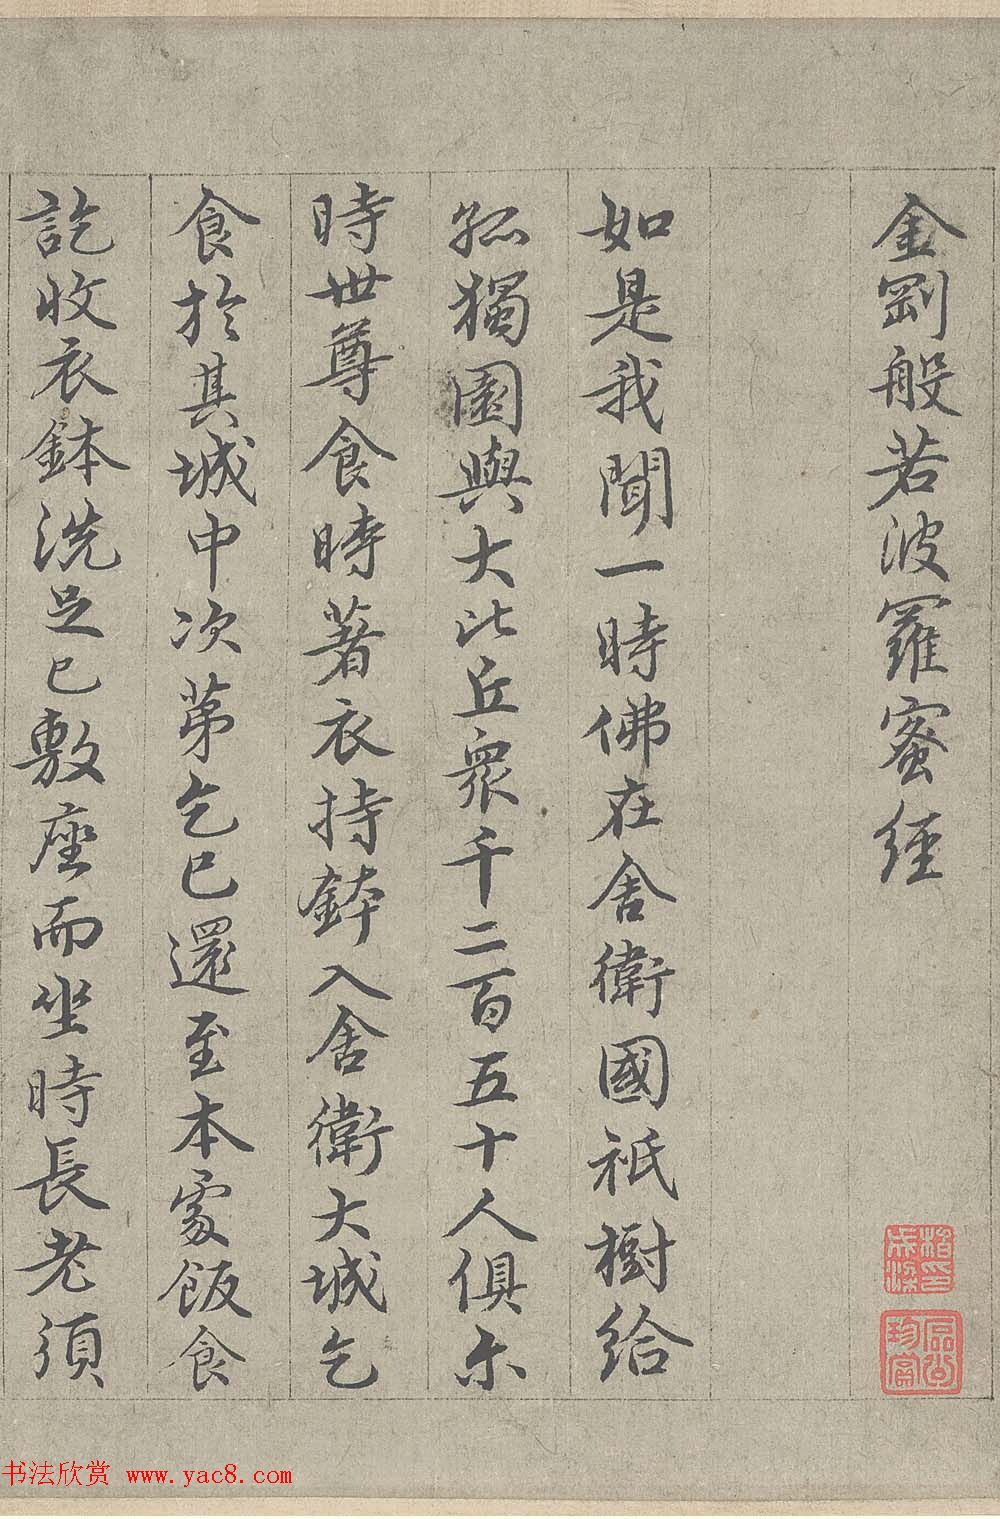 金剛般若波羅蜜經
如是我聞一時佛在舍衛國祇樹給
孤獨園與大比丘眾千二百五十人俱尔
時世尊食時著衣持鉢入舍衛大城乞
食於其城中次第乞已還至本處飯食
訖收衣鉢洗足已敷座而坐時長老須
书法欣赏 www.yac8.com